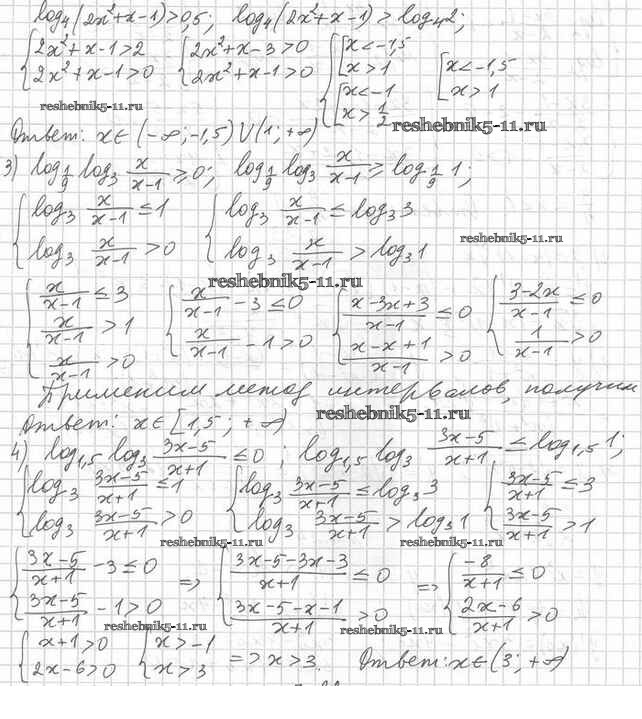 log₄(2x²+x-1)>0,5; log₄(2x²+x-1)>log₄2;
{2x²+x-1>2 {2x²+x-3>0 {[x<-1,5 [x<-1,5
{2x²+x-1>0 {2x²+x-1>0 {[x>1 [x>1
{[x<-1
{[x>1/2
reshebnik5-11.ru
Ответ: x∈(-∞;-1,5)∪(1;+∞) reshebnik5-11.ru
3) log_{1/9} log₃ x/(x-1) ≥ 0; log_{1/9} log₃ x/(x-1) ≥ log_{1/9} 1;
{log₃ x/(x-1) ≤ 1 {log₃ x/(x-1) ≤ log₃3
{log₃ x/(x-1) > 0 {log₃ x/(x-1) > log₃1
reshebnik5-11.ru
reshebnik5-11.ru
{x/(x-1) ≤ 3 {x/(x-1) - 3 ≤ 0 {(x-3x+3)/(x-1) ≤ 0 {(3-2x)/(x-1) ≤ 0
{x/(x-1) > 1 {x/(x-1) - 1 > 0 {(x-x+1)/(x-1) > 0 {1/(x-1) > 0
{x/(x-1) > 0
Применим метод интервалов, получим
Ответ: x∈[1,5; +∞) reshebnik5-11.ru
4) log_{1,5} log₃ (3x-5)/(x+1) ≤ 0; log_{1,5} log₃ (3x-5)/(x+1) ≤ log_{1,5} 1;
{log₃ (3x-5)/(x+1) ≤ 1 {log₃ (3x-5)/(x+1) ≤ log₃3 {(3x-5)/(x+1) ≤ 3
{log₃ (3x-5)/(x+1) > 0 {log₃ (3x-5)/(x+1) > log₃1 {(3x-5)/(x+1) > 1
reshebnik5-11.ru reshebnik5-11.ru
{(3x-5)/(x+1) - 3 ≤ 0 => {(3x-5-3x-3)/(x+1) ≤ 0 => {-8/(x+1) ≤ 0
{(3x-5)/(x+1) - 1 > 0 {(3x-5-x-1)/(x+1) > 0 {(2x-6)/(x+1) > 0
reshebnik5-11.ru reshebnik5-11.ru
{x+1>0 {x>-1 => x>3. Ответ: x∈(3; +∞)
{2x-6>0 {x>3